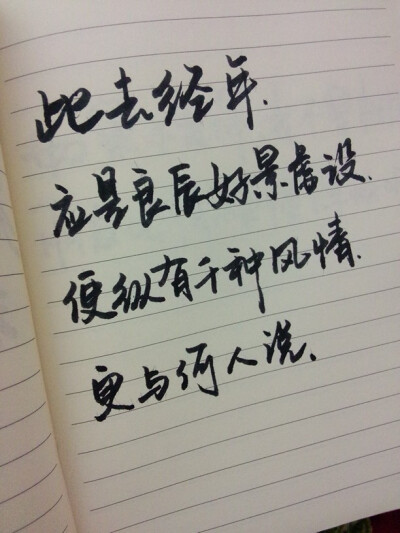 此去经年.
应是良辰好景虚设.
便纵有千种风情.
更与何人说.